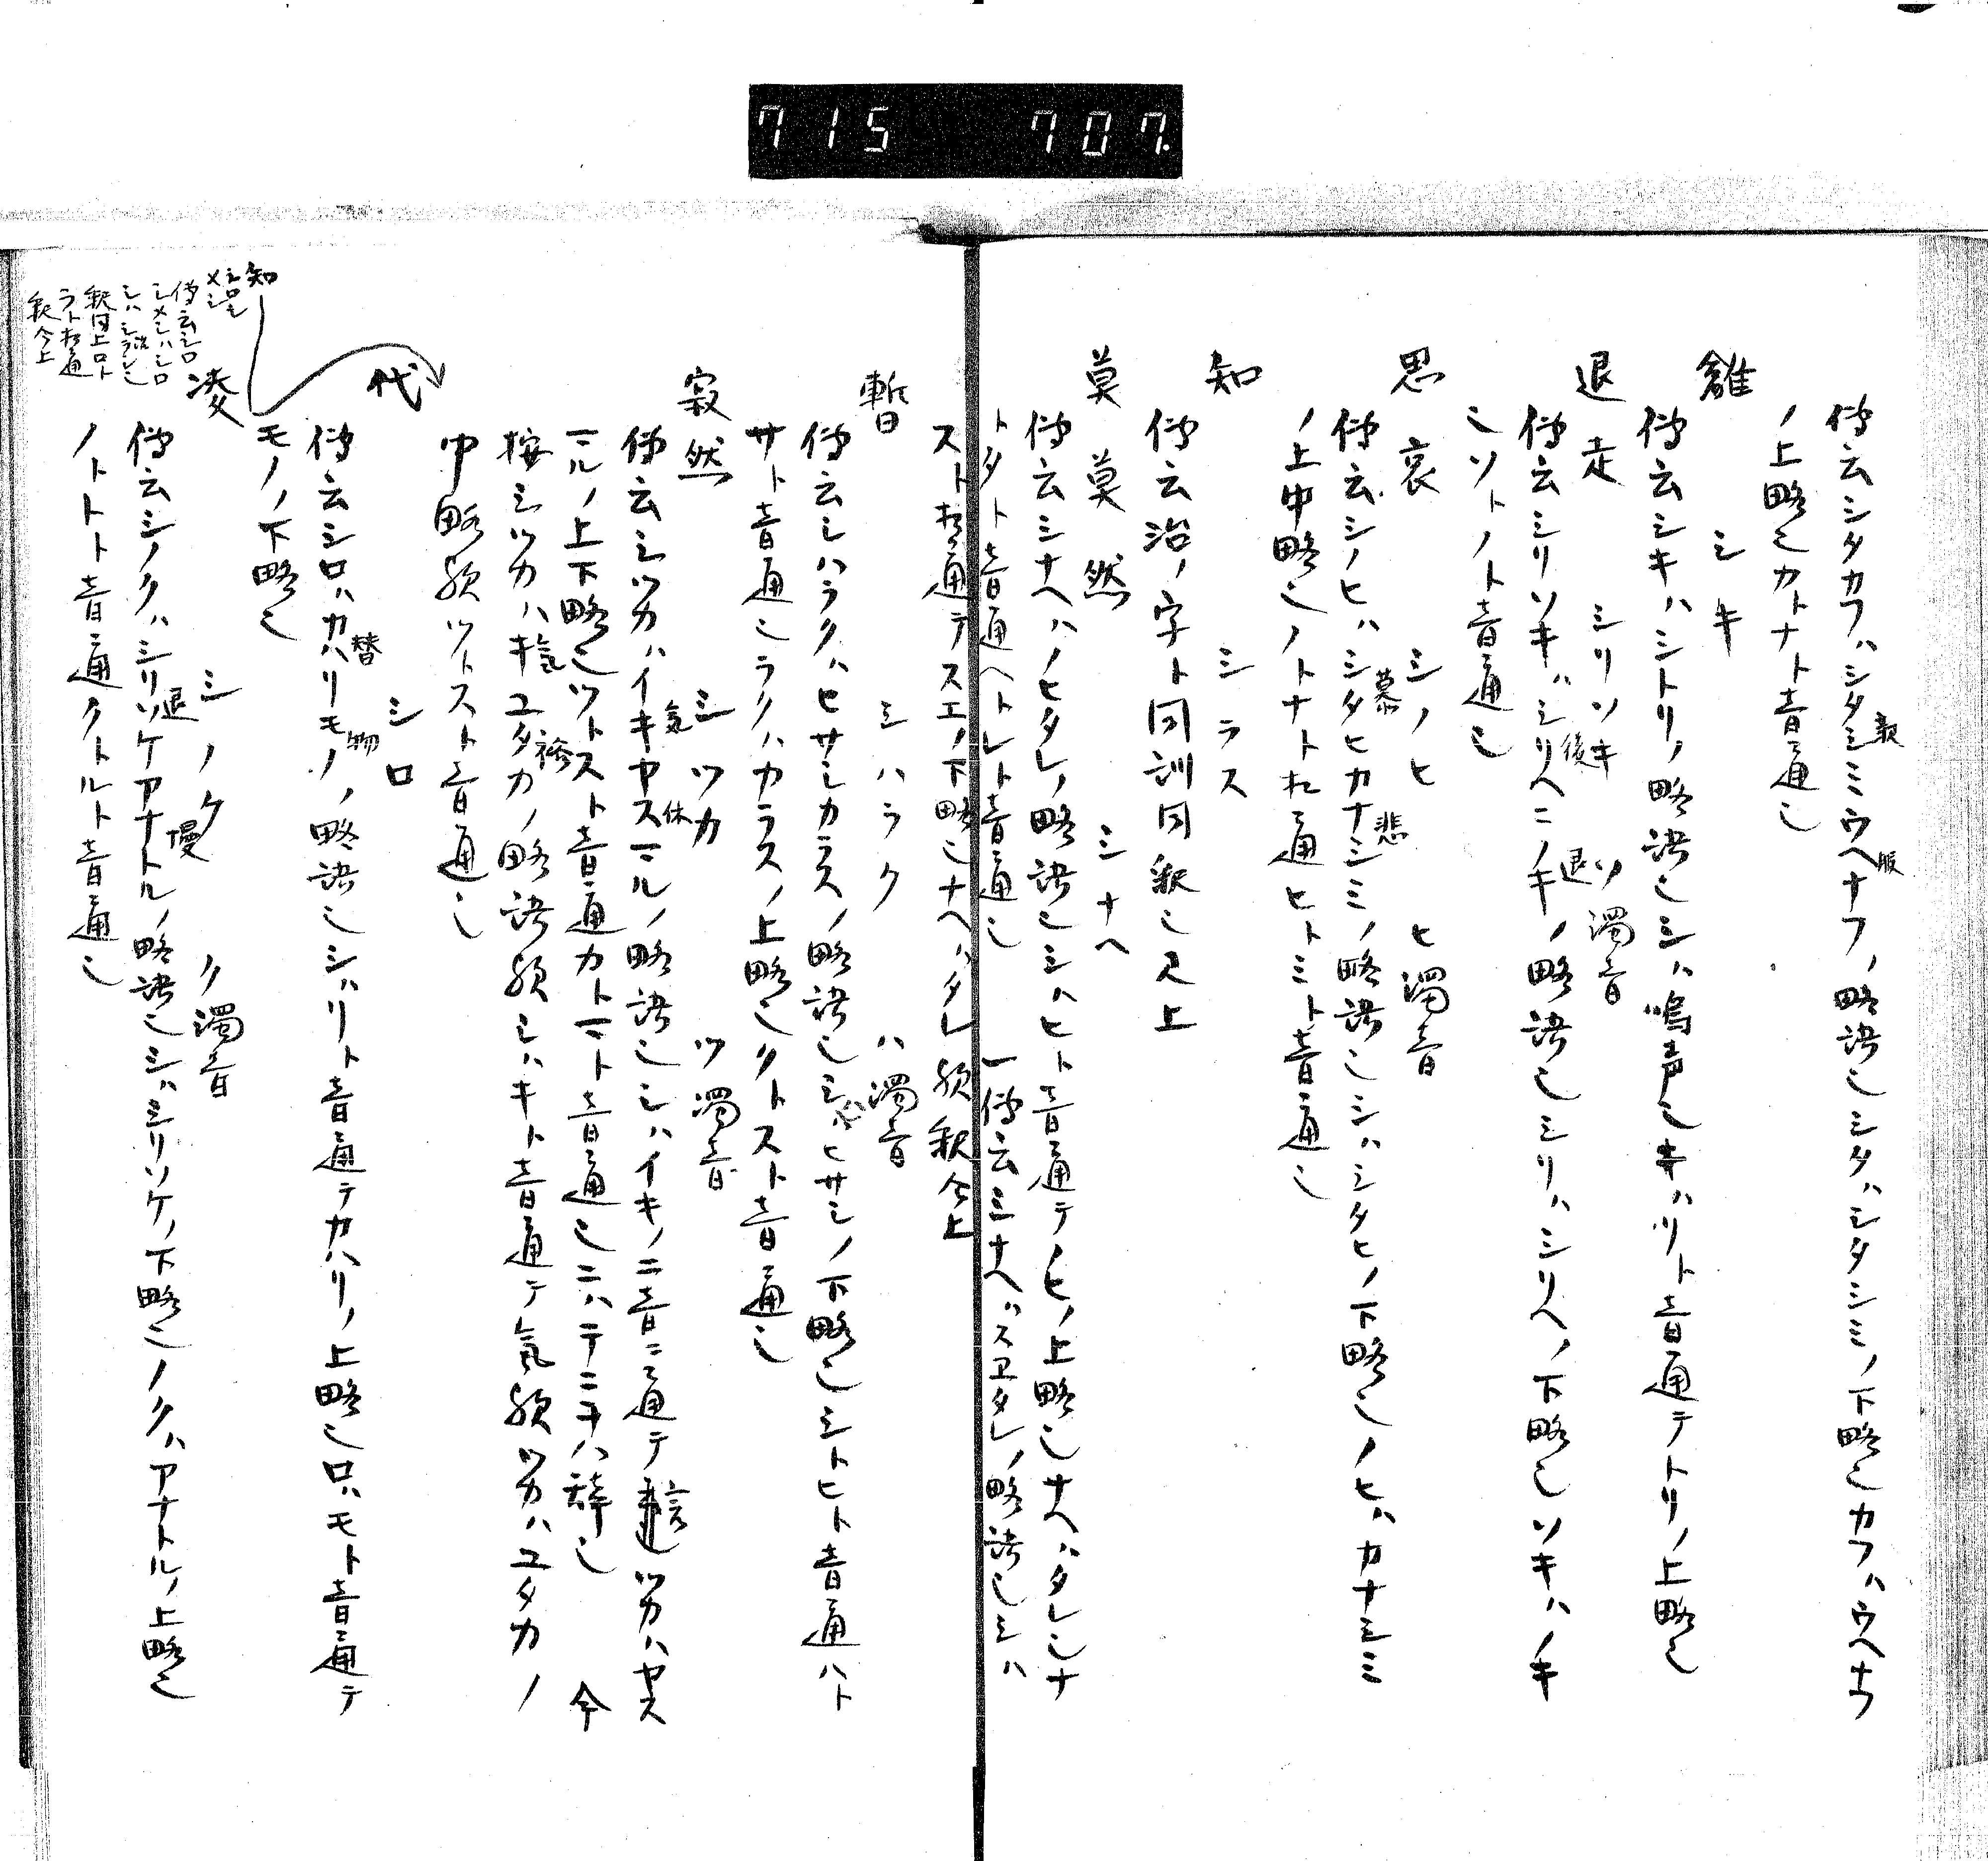 715 707.
傳云シタカフハシタシミウヘナフノ略語也シタハシタシミノ下略也カフハウヘナフ
親 服
ノ上略也カトナト音通也
雛 シキ
傳云シキハシトリノ略語也シハ鳴声也キハリト音通テトリノ上略也
退走 シリソキ ソ濁音
傳云シリソキハシリヘニノキノ略語也シリハシリヘノ下略也ソキハノキ
後 退
也ソトノト音通也
思哀 シノヒ ヒ濁音
傳云シノヒハシタヒカナシミノ略語也シハシタヒノ下略也ノヒハカナシミ
慕 悲
ノ上中略也ノトナト相通ヒトミト音通也
知 シラス
傳云治ノ字ト同訓同釈也又上
莫莫然 シナヘ
傳云シナヘハノヒタレノ略語也シハヒト音通テノヒノ上略也ナヘハタレ也ナ
トタト音通ヘトレト音通也 一傳云シナヘハスヱタレノ略語也シハ
スト相通テスエノ下略也ナヘハタレ欤釈今上
暫 シハラク ハ濁音
傳云シハラクハヒサシカラスノ略語也シハヒサシノ下略也シトヒト音通ハト
サト音通也ラクハカラスノ上略也クトスト音通也
寂然 シツカ ツ濁音
傳云シツカハイキヤスマルノ略語也シハイキノ二音ニ通テ言也ツカハヤス
気 休
マルノ上下略也ツトスト音通カトマト音通也ニハテニヲハ辞也 今
按シツカハキユタカノ略語欤シハキト音通テ気欤ツカハユタカノ
氣 裕
中略欤ツトスト音通也
代 シロ
傳云シロハカハリモノノ略語也シハリト音通テカハリノ上略也ロハモト音通テ
替 物
モノノ下略也
凌 シノク ク濁音
傳云シノクハシリソケアナトルノ略語也シハシリソケノ下略也ノクハアナトルノ上略也
退 慢
ノトトト音通クトルト音通也
知
シロシメシ
傳云シロ
シメシハシロ
シハシラシ也
釈同上ロト
ラト相通
釈今上